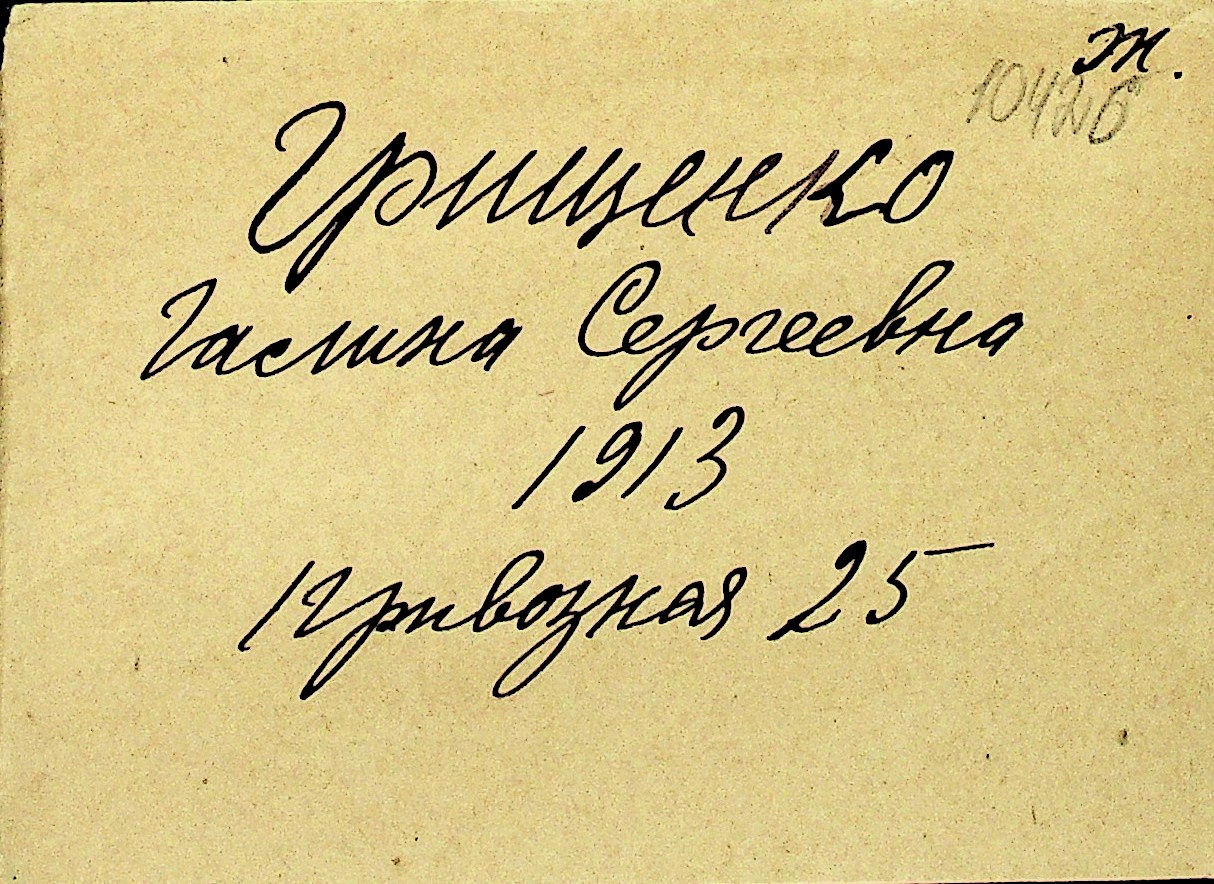 ж.
10426
Грищенко
Галина Сергеевна
1913
Привозная 25